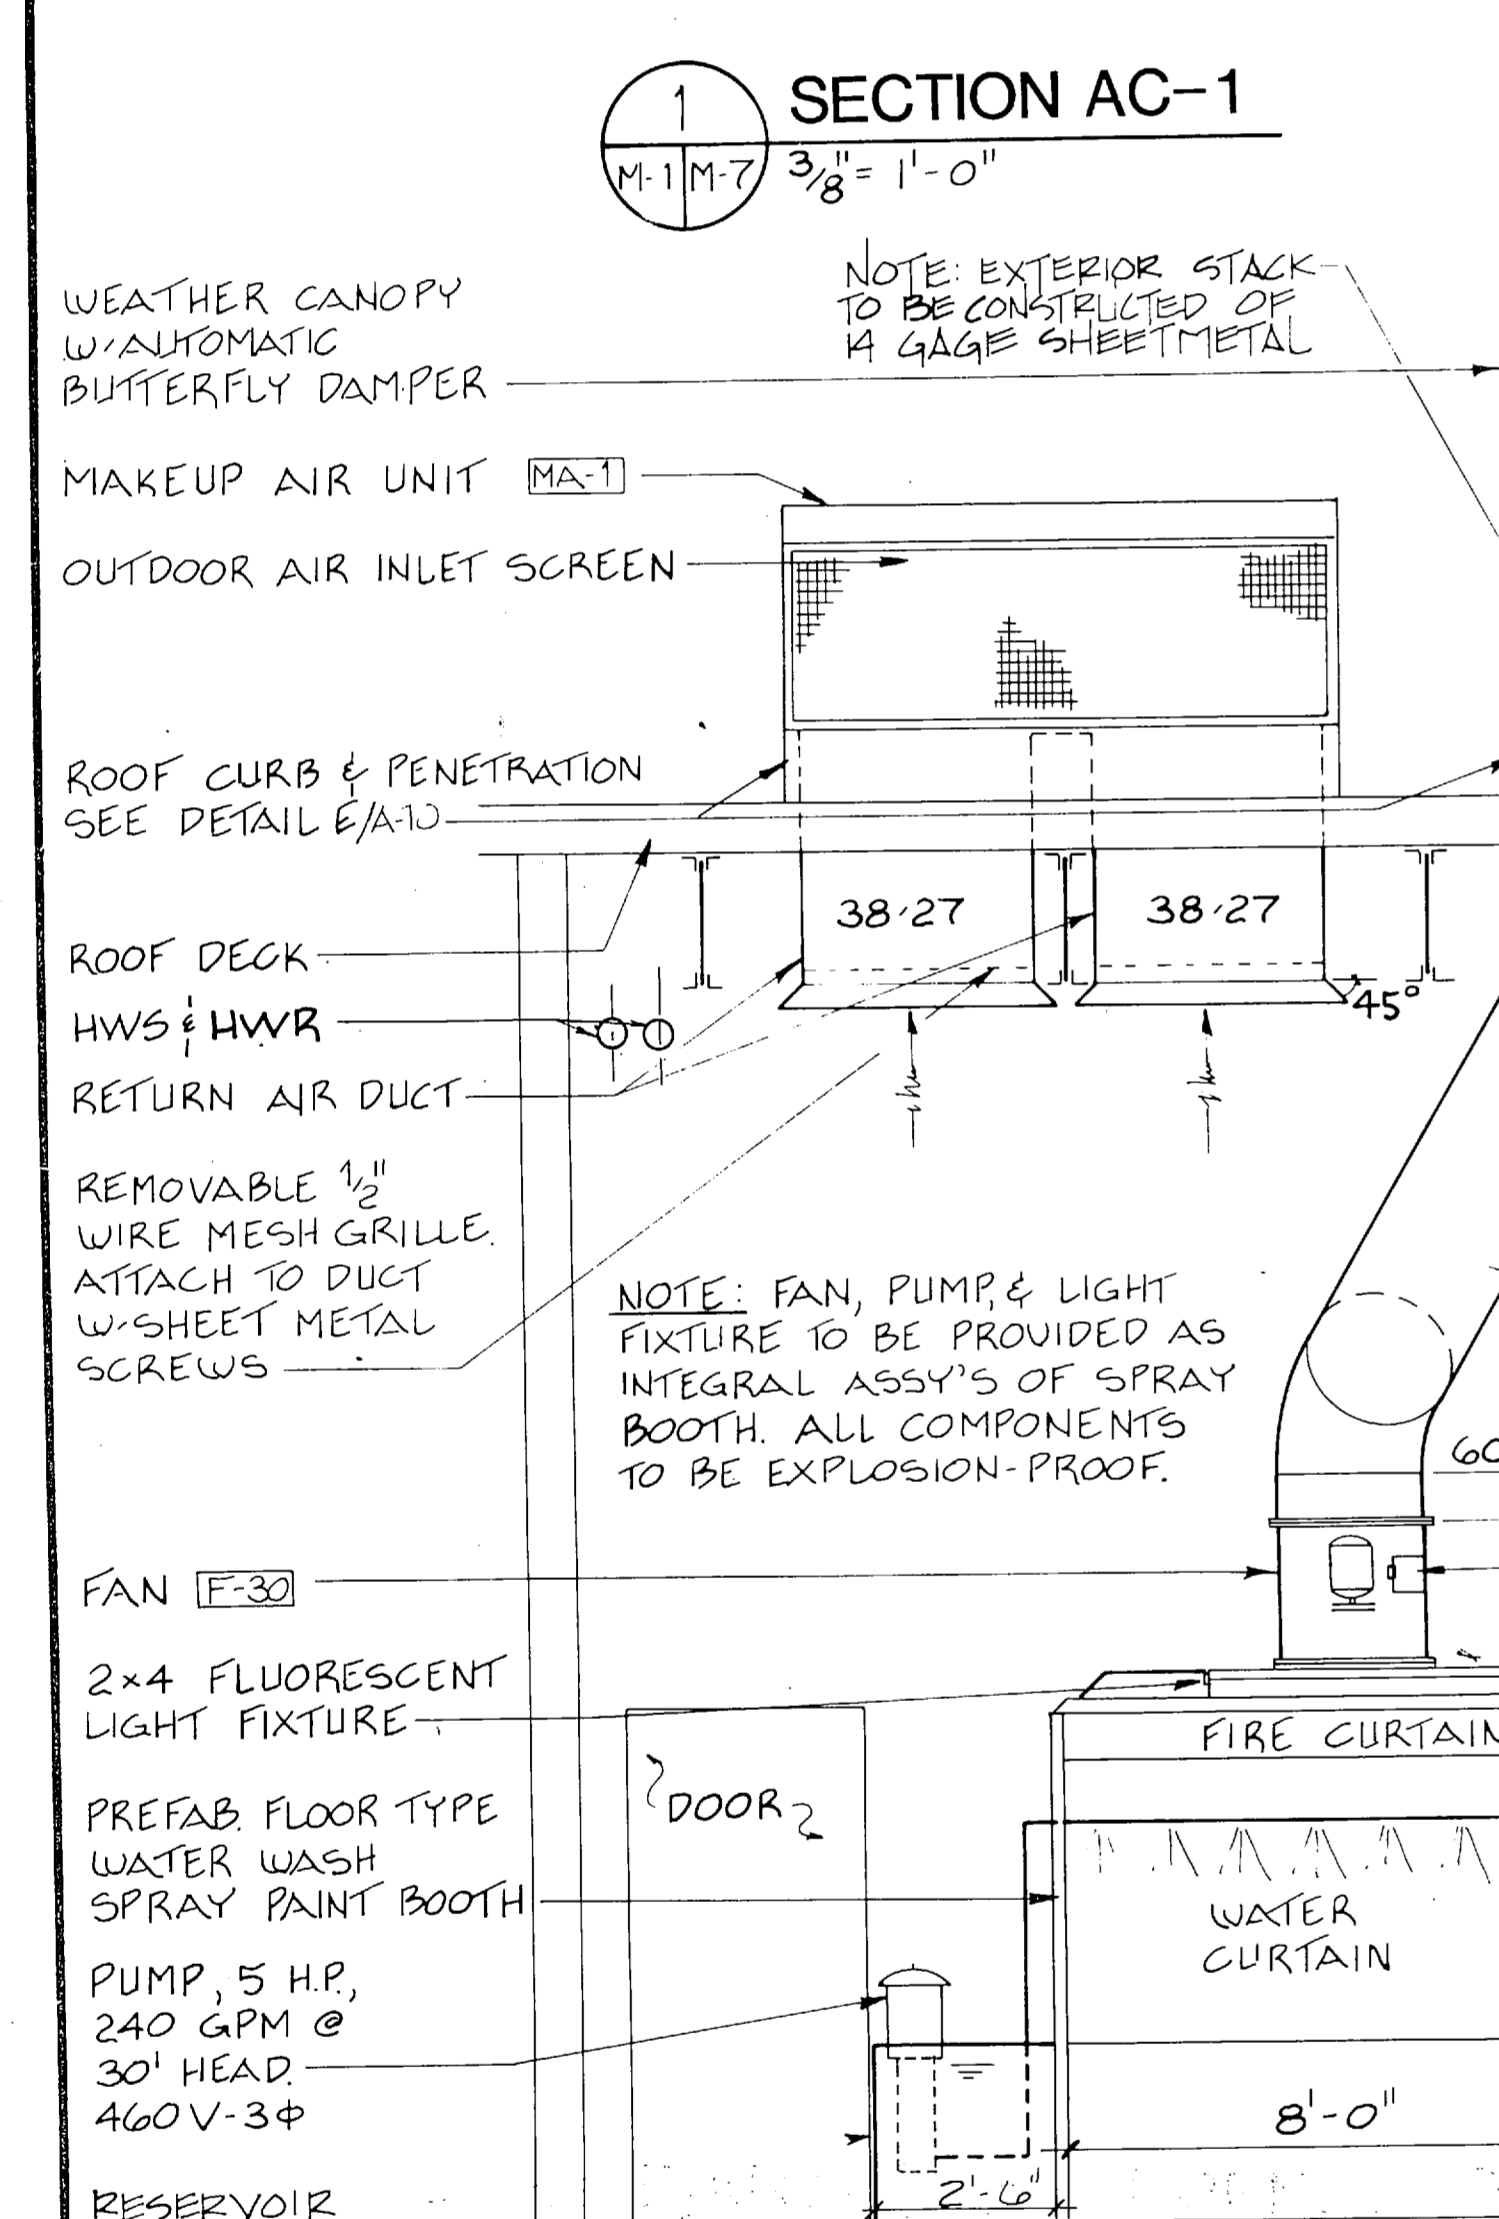 1
M-1 M-7
SECTION AC-1
3/8" = 1'-0"
WEATHER CANOPY
W/AUTOMATIC
BUTTERFLY DAMPER
NOTE: EXTERIOR STACK
TO BE CONSTRUCTED OF
14 GAGE SHEETMETAL
MAKEUP AIR UNIT MA-1
OUTDOOR AIR INLET SCREEN
ROOF CURB & PENETRATION
SEE DETAIL E/A-10
38/27
38/27
45°
ROOF DECK
HWS & HWR
RETURN AIR DUCT
REMOVABLE 1/2"
WIRE MESH GRILLE.
ATTACH TO DUCT
W/SHEET METAL
SCREWS
NOTE: FAN, PUMP, & LIGHT
FIXTURE TO BE PROVIDED AS
INTEGRAL ASSY'S OF SPRAY
BOOTH. ALL COMPONENTS
TO BE EXPLOSION-PROOF.
60
FAN F-30
2x4 FLUORESCENT
LIGHT FIXTURE
FIRE CURTAIN
PREFAB. FLOOR TYPE
WATER WASH
SPRAY PAINT BOOTH
DOOR
WATER
CURTAIN
PUMP, 5 H.P.,
240 GPM @
30' HEAD.
460V-3Φ
8'-0"
2'-6"
RESERVOIR